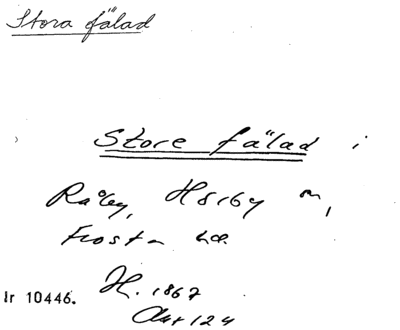 Stora fälad
Store fälad i
Råby, Hörby sn,
Frosta hd.
lr 10446.
H. 1867
Akt 124